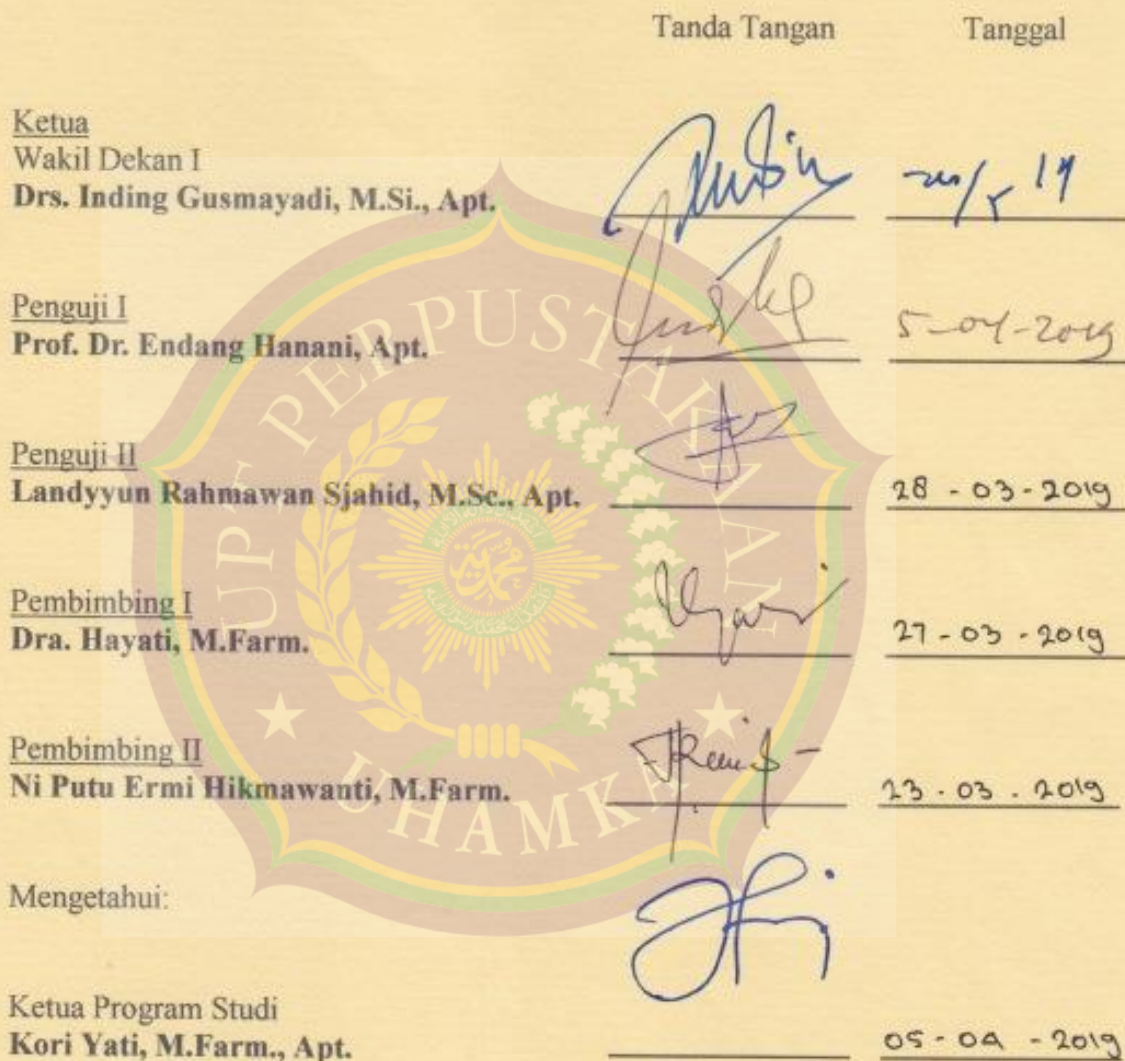 Tanda Tangan Tanggal
Ketua
Wakil Dekan I
Drs. Inding Gusmayadi, M.Si., Apt.
Penguji I
Prof. Dr. Endang Hanani, Apt. 5-04-2019
Penguji II
Landyyun Rahmawan Sjahid, M.Sc., Apt. 28-03-2019
Pembimbing I
Dra. Hayati, M.Farm. 27-03-2019
Pembimbing II
Ni Putu Ermi Hikmawanti, M.Farm. 23.03.2019
Mengetahui:
Ketua Program Studi
Kori Yati, M.Farm., Apt. 05-04-2019
UPT PERPUSTAKAAN
UHAMKA